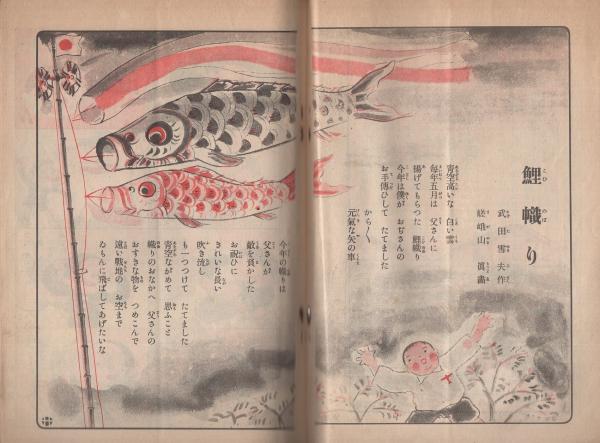 鯉幟り
武田雪夫作
嵯峨山 眞畵
青空高いな 白い雲
毎年五月は 父さんに
揚げてもらつた 鯉幟り
今年は僕が おぢさんの
お手傳ひして たてました
から〱
元氣な矢の車
今年の幟りは
父さんが
敵を負かした
お祝ひに
きれいな長い
吹き流し
も一つつけて たてました
青空ながめて 思ふこと
幟りのおなかへ 父さんの
おすきな物を つめこんで
遠い戰地の お空まで
ゐもんに飛ばしてあげたいな